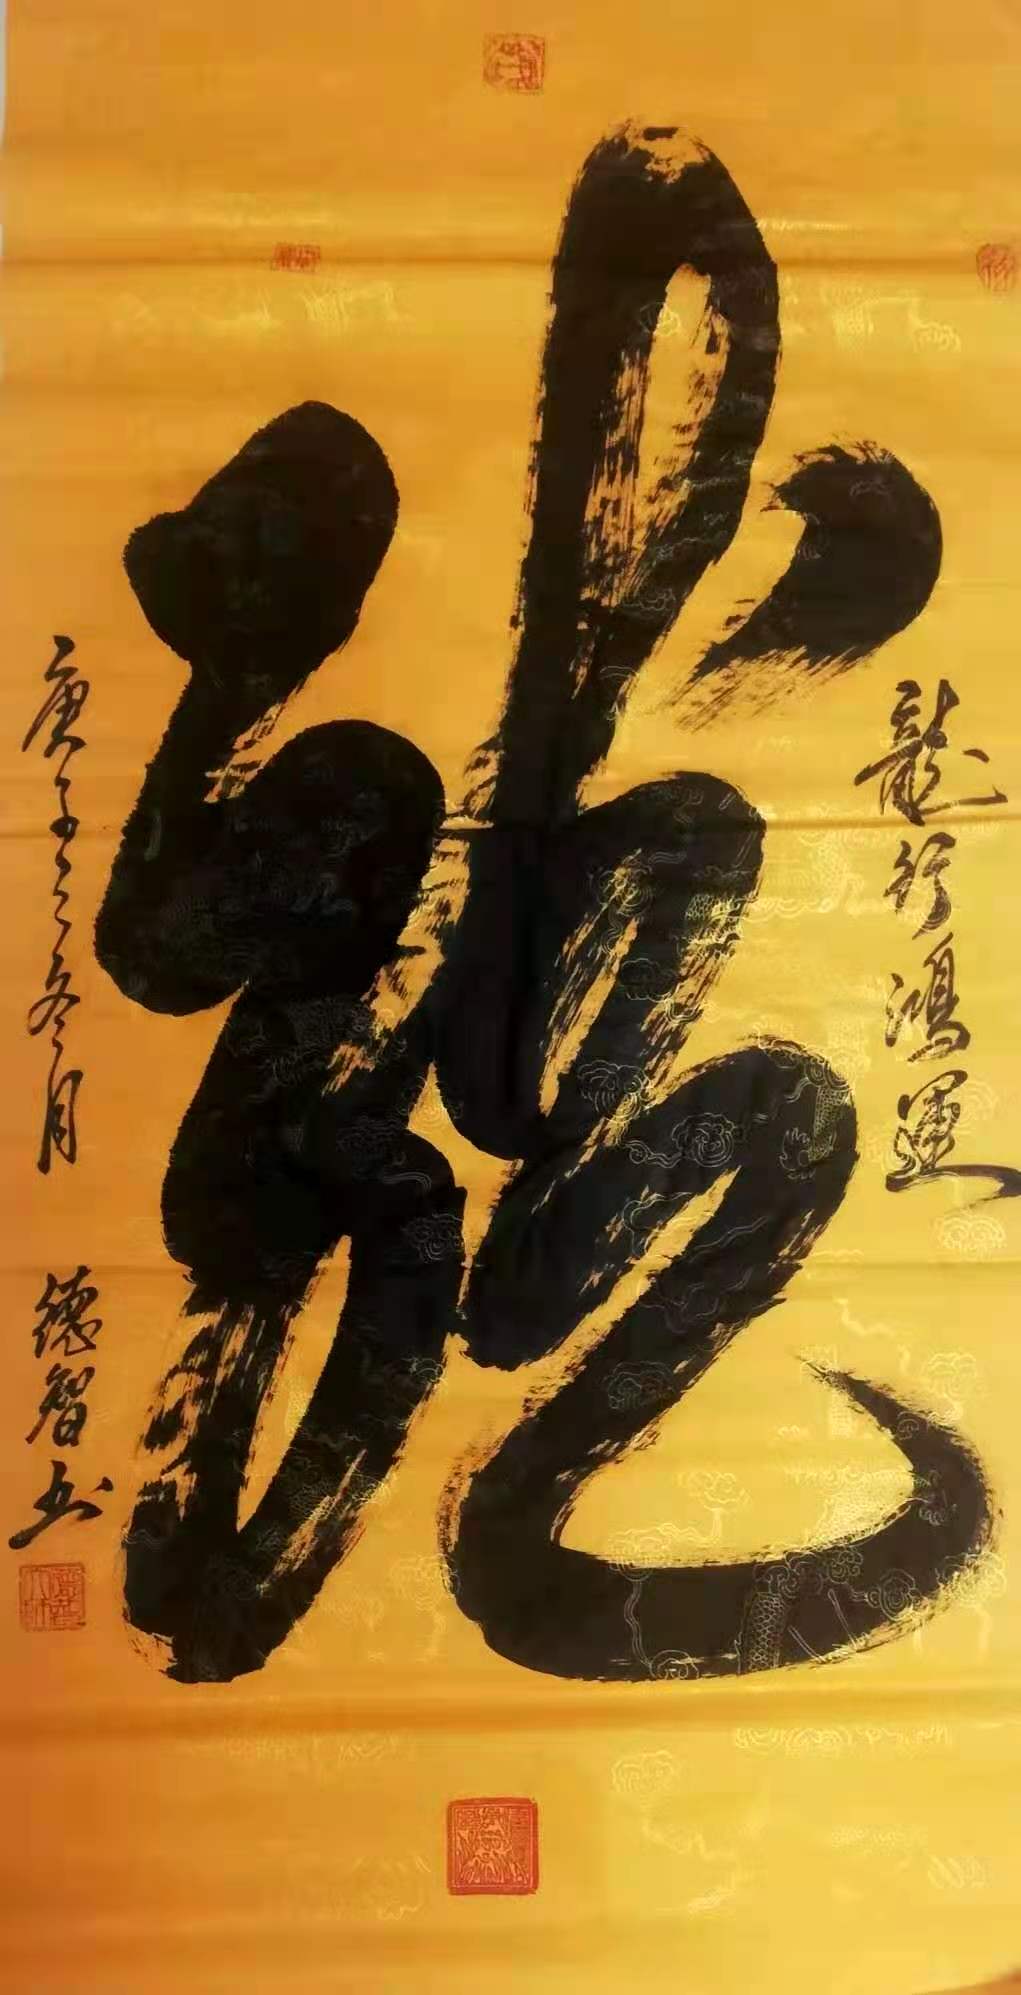 龍行鴻運
龍
庚子之冬月
德智书